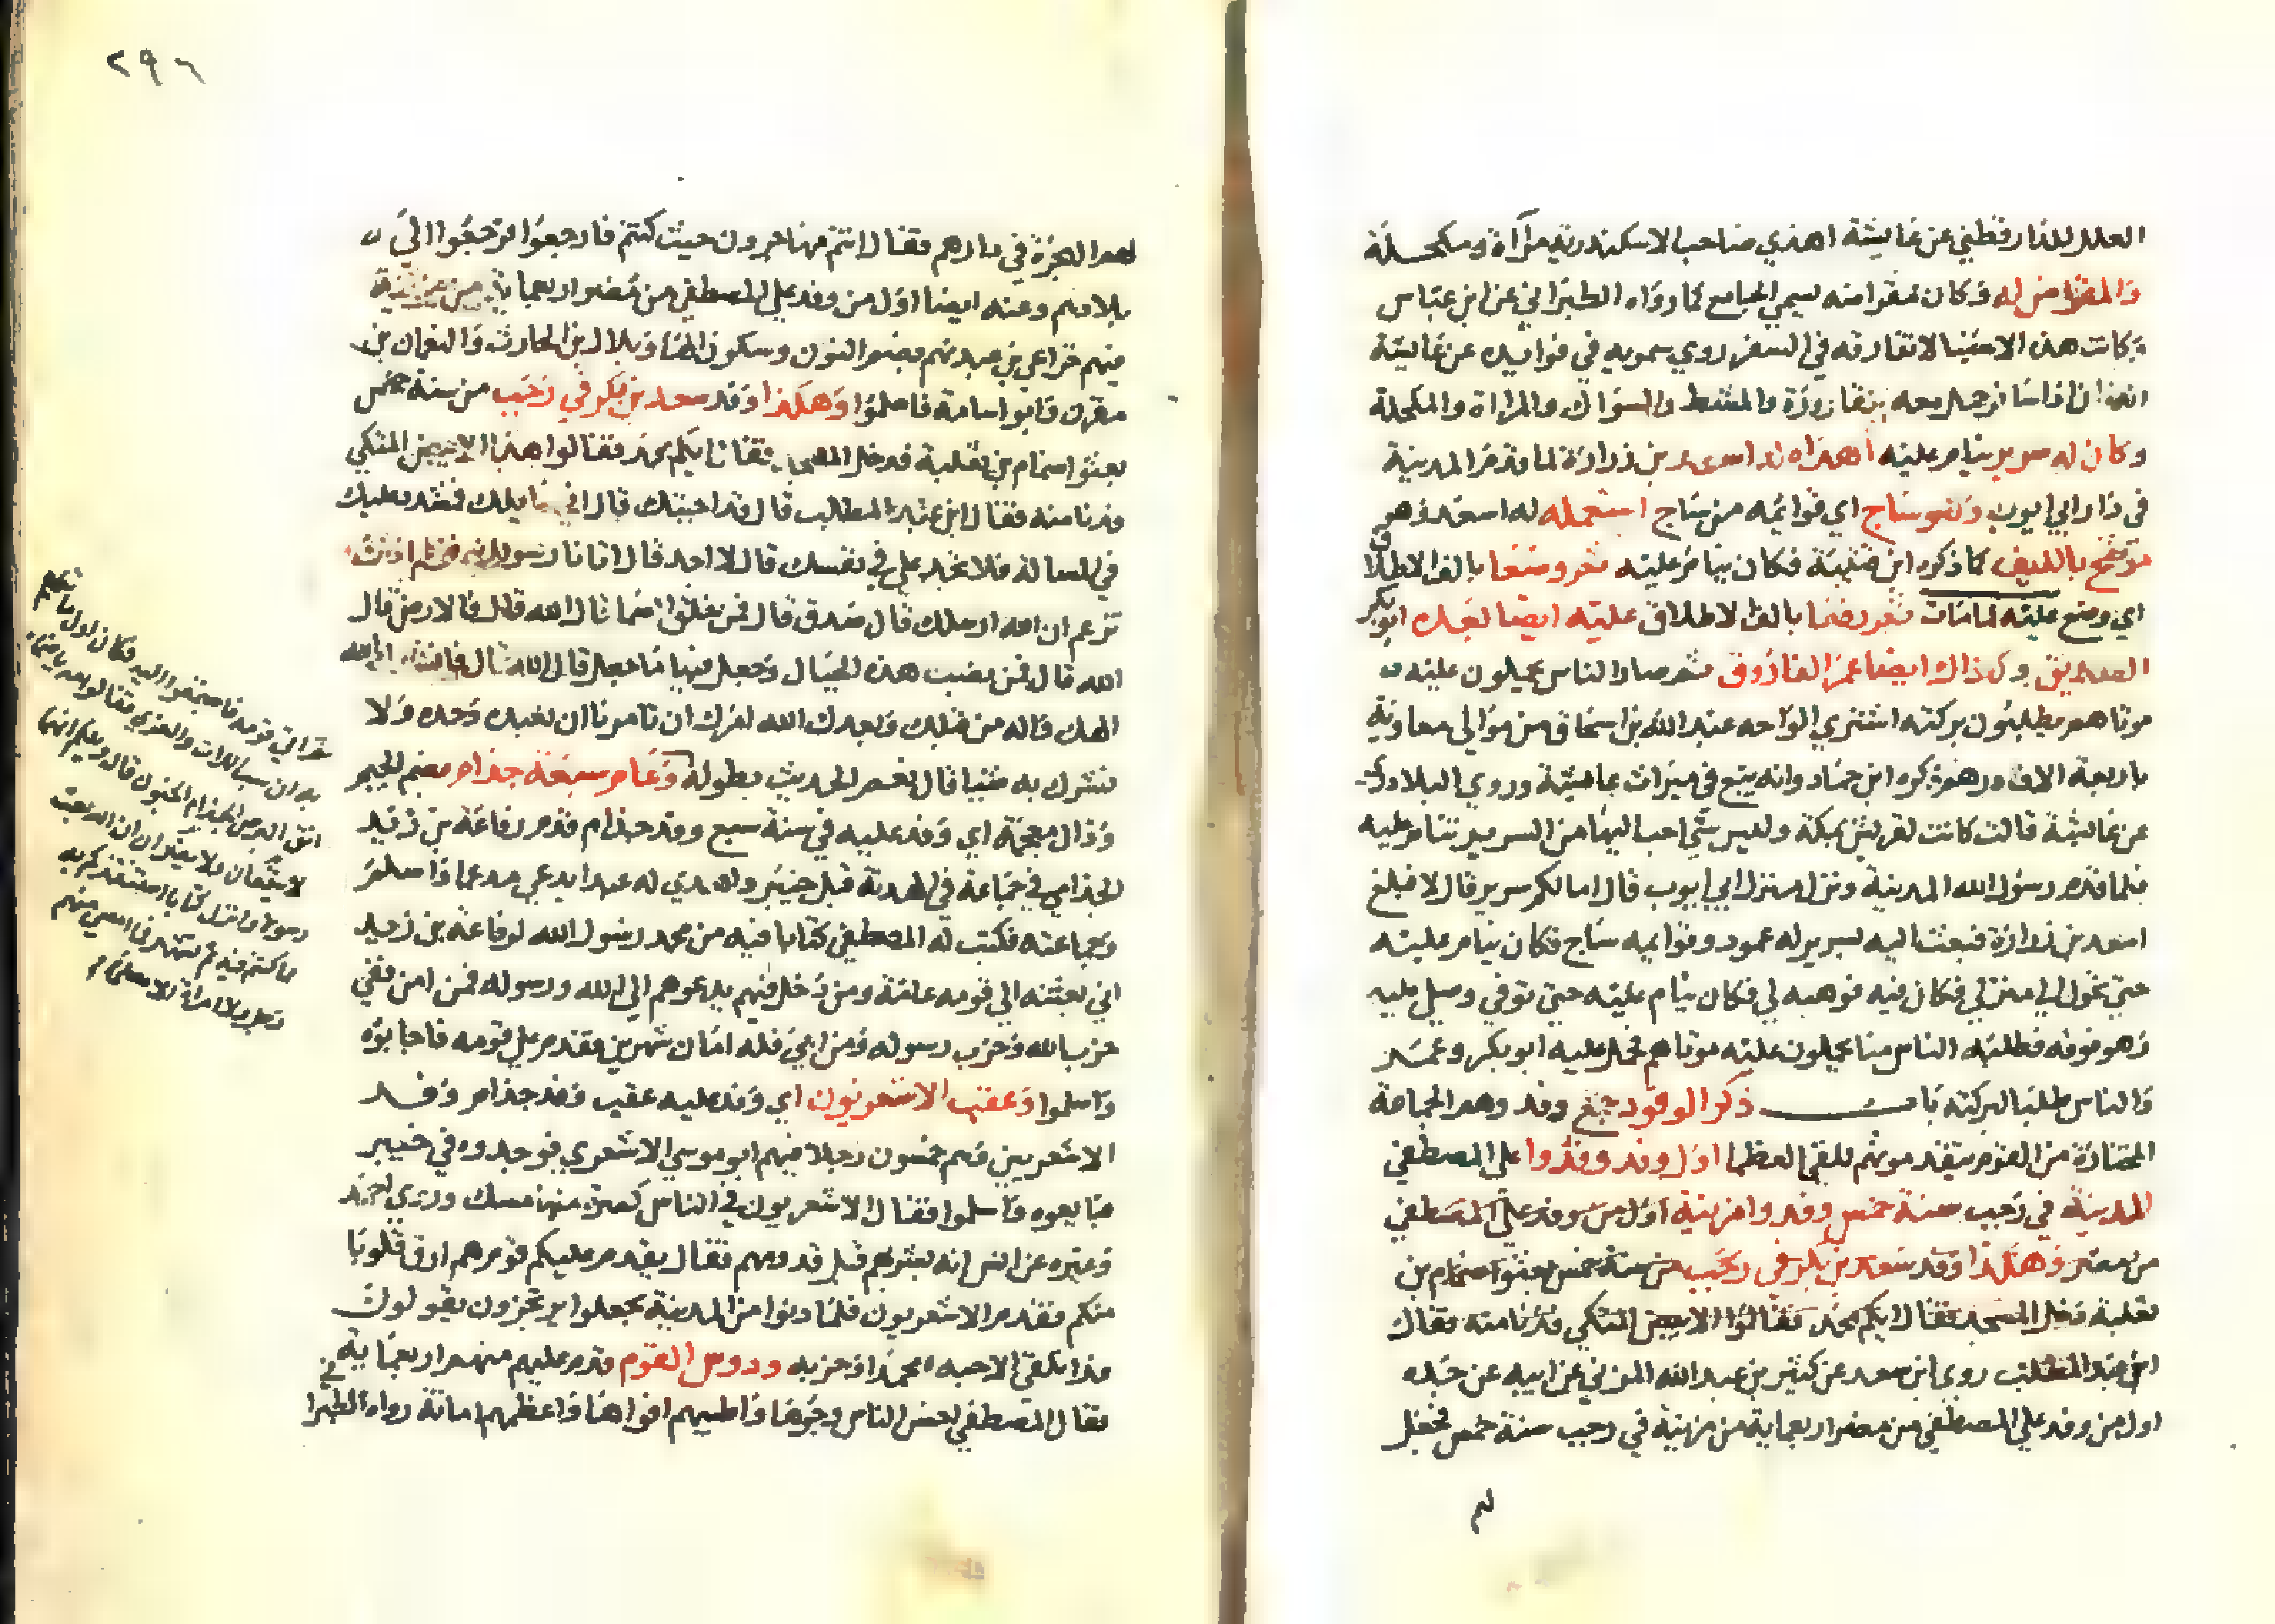 العلل للدارقطني عن عايشة اهدي صاحب الاسكندرية مرآة ومكحلة
والمقراض له وكان مقراضه يسمي الجامع كما رواه الطبراني عن ابن عباس
وكانت هذه الاشيا لا تفارقه في السفر روي سمويه في فوايده عن عايشة
انه اذا سافر حمل معه قارورة والمشط والسواك والمرآة والمكحلة
وكان له سرير ينام عليه اهداه له اسعد بن زرارة لما قدم المدينة
في دار ابي ايوب وهو ساج اي قوائمه من ساج استعمله له اسعد وهو
موشح بالليف كما ذكره ابن قتيبة فكان ينام عليه ثم وضعا بالف الاطلاق
اي وضع عليه لما مات ثم رضا بالف الاطلاق عليه ايضا بعده ابوبكر
الصديق وكذاك ايضا عمر الفاروق ثم صار الناس يحملون عليه
موتاهم يطلبون بركته اشتري الواحه عبد الله بن اسحاق من موالي معاوية
باربعة الاف درهم ذكره ابن حماد وانه بيع في ميراث عايشة وروي البلاذري
عن عايشة قالت كانت لقريش بمكة وليس شي احب اليها من السرير تنام عليه
فلما قدم رسول الله المدينة ونزل منزل ابي ايوب قال امالكم سرير قال لا فبلغ
اسعد بن زرارة فبعث اليه بسرير له عمود وقوايمه ساج فكان ينام عليه
حتي تحول الي منزلي فكان فيه فوهبه لي فكان ينام عليه حتي توفي وصلي عليه
وهو فوقه فطلبه الناس منا يحملون عليه موتاهم فحمل عليه ابو بكر وعمر
والناس طلبا لبركته باب ذكر الوفود جمع وفد وهم الجماعة
المختارة من القوم يتقدمونهم للقي العظما اول وفد وفدوا علي المصطفي
المدينة في رجب سنة خمس وفدوا مزينة اول من وفد علي المصطفي
من مضر وهكذا وفد سعد بن بكر في رجب من سنة خمس بعثوا ضمام بن
ثعلبة فدخل المسجد فقال ايكم محمد فقالوا الابيض المتكي فدنا منه فقال
ابن عبد المطلب روي ابن سعد عن كثير بن عبد الله المزني عن ابيه عن جده
اول من وفد علي المصطفي من مضر اربعماية من مزينة في رجب سنة خمس فجعل
لهم
٢٩٦
لهم الهجرة في دارهم وقال انتم مهاجرون حيث كنتم فارجعوا فرجعوا الي
بلادهم وعنه ايضا اول من وفد علي المصطفي من مضر اربعماية من مزينة
منهم خزاعي بن عبد نهم بضم النون وسكون الها وبلال بن الحارث والنعمان بن
مقرن وابو اسامة فاسلموا وهكذا وفد سعد بن بكر في رجب من سنة خمس
بعثوا ضمام بن ثعلبة فدخل المسجد فقال ايكم محمد فقالوا هذا الابيض المتكي
فدنا منه فقال ابن عبد المطلب قال قد اجبتك قال اني سايلك فمشدد عليك
في المسالة فلا تجد علي في نفسك قال لا اجد قال اتانا رسولك
تزعم ان الله ارسلك قال صدق قال فمن خلق السما قال الله قال فالارض قال
الله قال فمن نصب هذه الجبال وجعل فيها ما جعل قال الله قال فانشدك الله
الهك واله من قبلك وبعدك الله امرك ان تامرنا ان نعبده وحده ولا
نشرك به شيا قال نعم الحديث بطوله وعام سبعة جذام بضم الجيم
وذال معجمة اي وفد عليه في سنة سبع وفد جذام قدم رفاعة بن زيد
الجذامي في جماعة في الهدنة قبل خيبر واهدي له عبدا يدعي مدعما واسلم
وجماعته فكتب له المصطفي كتابا فيه من محمد رسول الله لرفاعة بن زيد
اني بعثته الي قومه عامة ومن دخل فيهم يدعوهم الي الله ورسوله فمن امن ففي
حزب الله وحزب رسوله ومن ابي فله امان شهرين فقدم علي قومه فاجابوه
واسلموا وعقبه الاشعريون اي وفد عليه عقيب وفد جذام وفد
الاشعريين وهم خمسون رجلا فيهم ابو موسي الاشعري فوجدوه في خيبر
فبايعوه واسلموا فقال الاشعريون في الناس كصرة فيها مسك وروي احمد
وغيره عن انس انه بشرهم قبل قدومهم فقال يقدم عليكم قوم هم ارق قلوبا
منكم فقدم الاشعريون فلما دنوا من المدينة جعلوا يرتجزون يقولون
غدا نلقي الاحبه محمدا وحزبه ودوس القوم قدم عليهم منهم اربعماية
فقال المصطفي احسن الناس وجوها واطيبهم افواها واعظمهم امانة رواه الطبراني
ثم اتي قومه فاجتمعوا اليه فكان اول ما تكلم
به ان سب اللات والعزي فقالوا مه يا ضمام
اتق البرص الجذام الجنون قال ويلكم انهما
لا ينفعان ولا يضران ان الله بعث
رسولا وانزل كتابا استنقذكم به
مما كنتم فيه فما امسي منهم
رجل ولا امراة الا مسلما